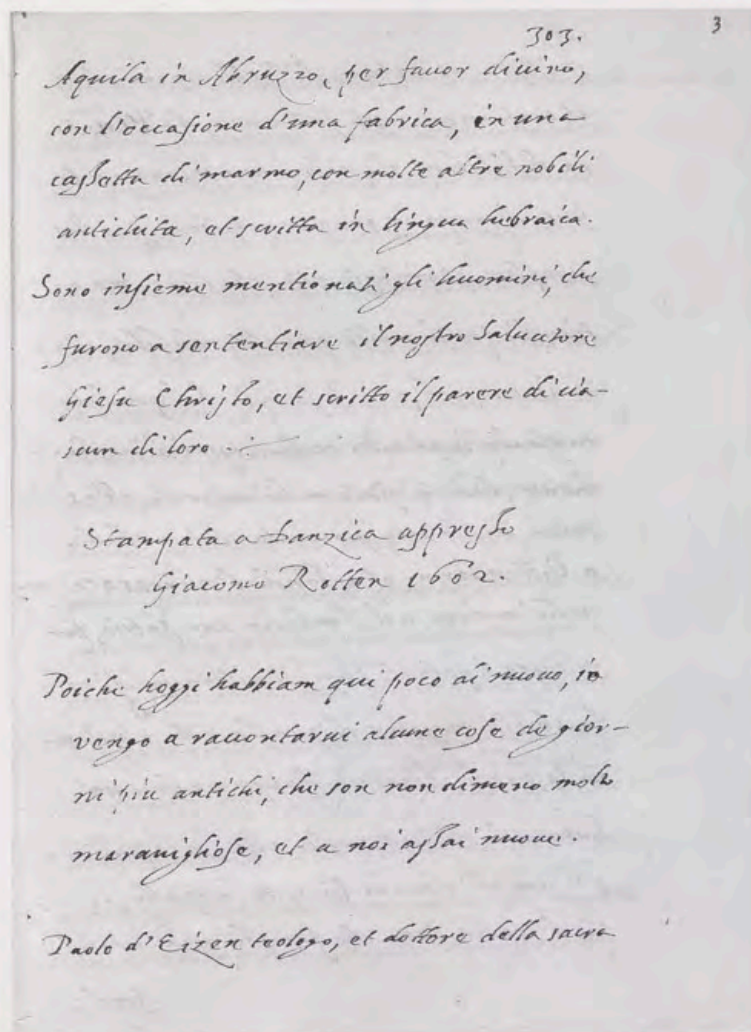 303. 3
Aquila in Abruzzo, per favor divino,
con l'occasione d'una fabrica, in una
cassetta di marmo, con molte altre nobili
antichita, et scritta in lingua hebraica.
Sono insieme mentionati gli huomini, che
furono a sententiare il nostro Salvatore
Giesu Christo, et scritto il parere di cia-
scun di loro.
Stampata a Danzica appresso
Giacomo Rotten 1602.
Poiche hoggi habbiam qui poco di nuovo, io
vengo a raccontarvi alcune cose de gior-
ni piu antichi, che son non dimeno molto
maravigliose, et a noi assai nuove.
Paolo d'Eizen teologo, et dottore della sacra